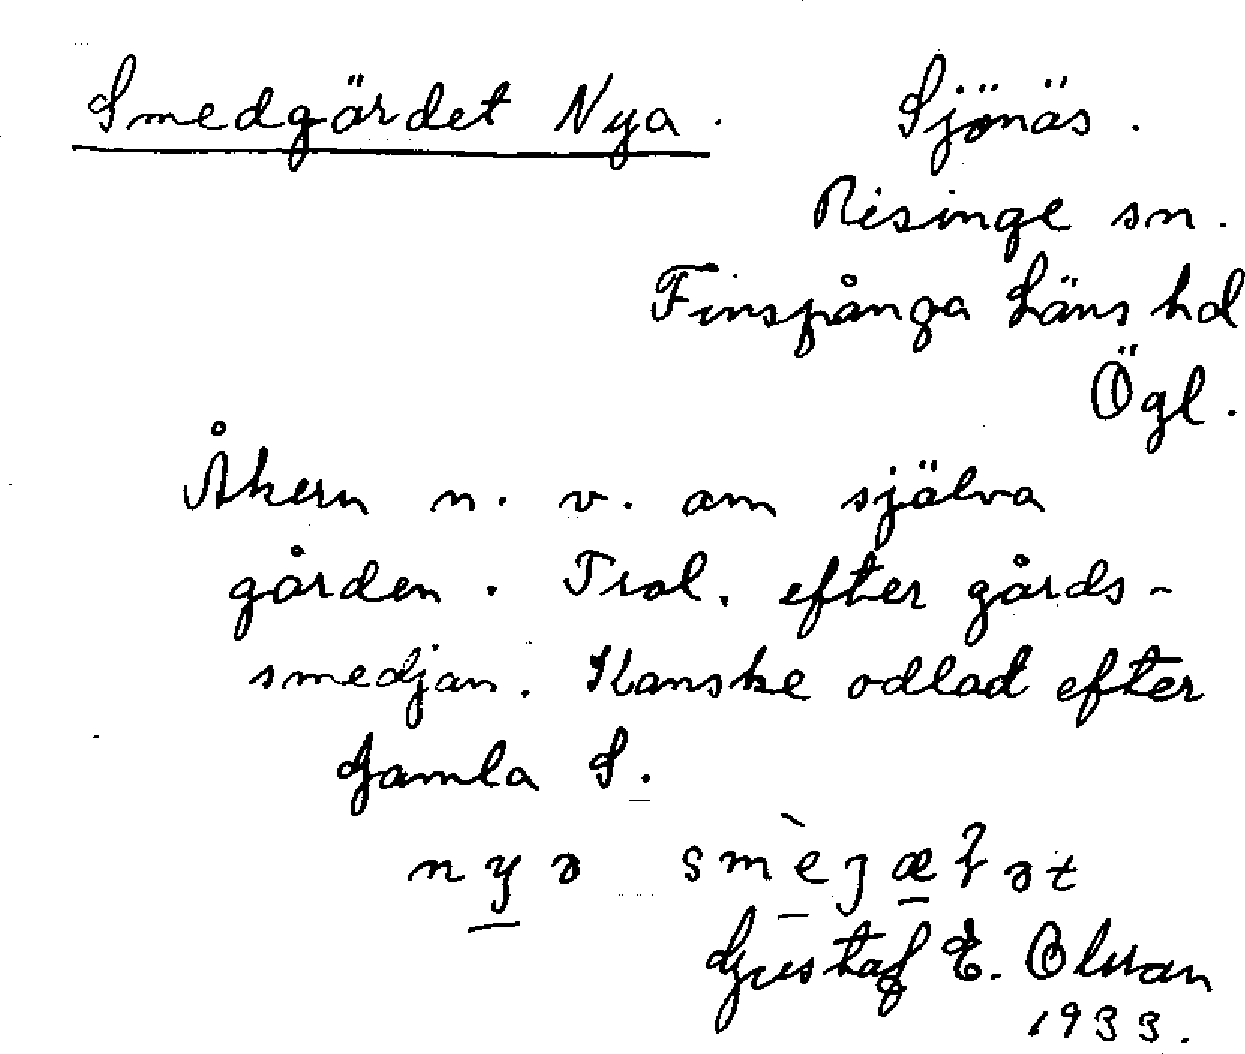 Smedgärdet Nya. Sjönäs.
Risinge sn.
Finspånga Läns hd
Ögl.
Åkern n. v. om själva
gården. Trol. efter gårds-
smedjan. Kanske odlad efter
Gamla S.
nyə
Gustaf E. Olsson
1933.